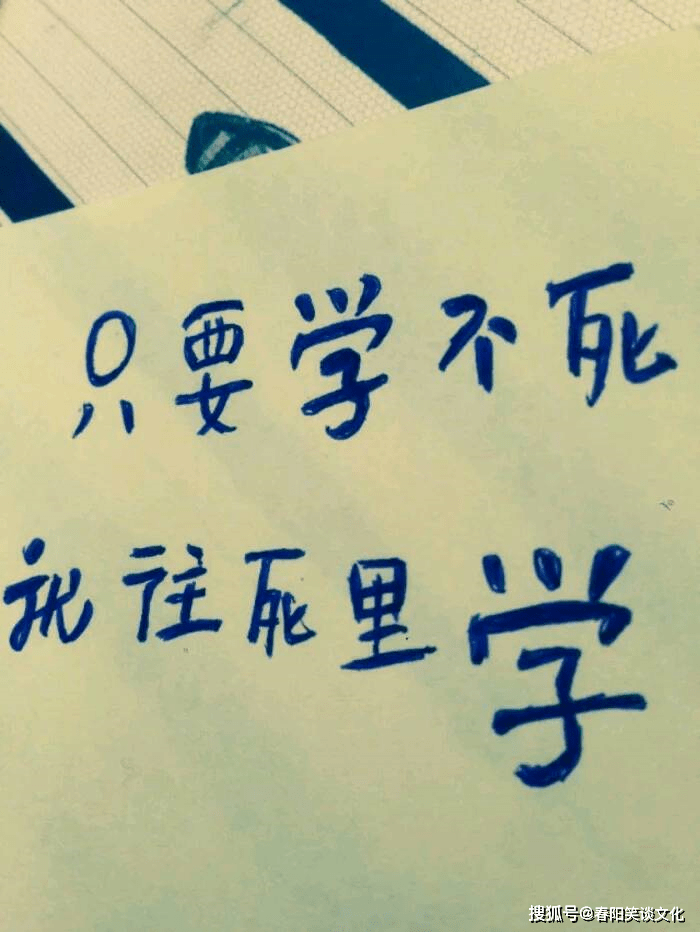 只要学不死
就往死里学
搜狐号@春阳笑谈文化